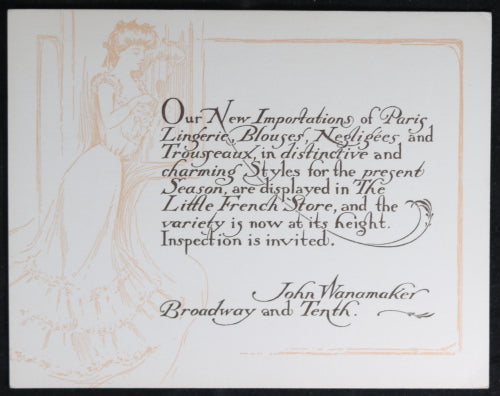 Our New Importations of Paris
Lingerie, Blouses, Negligées and
Trousseaux, in distinctive and
charming Styles for the present
Season, are displayed in The
Little French Store, and the
variety is now at its height.
Inspection is invited.
John Wanamaker
Broadway and Tenth.